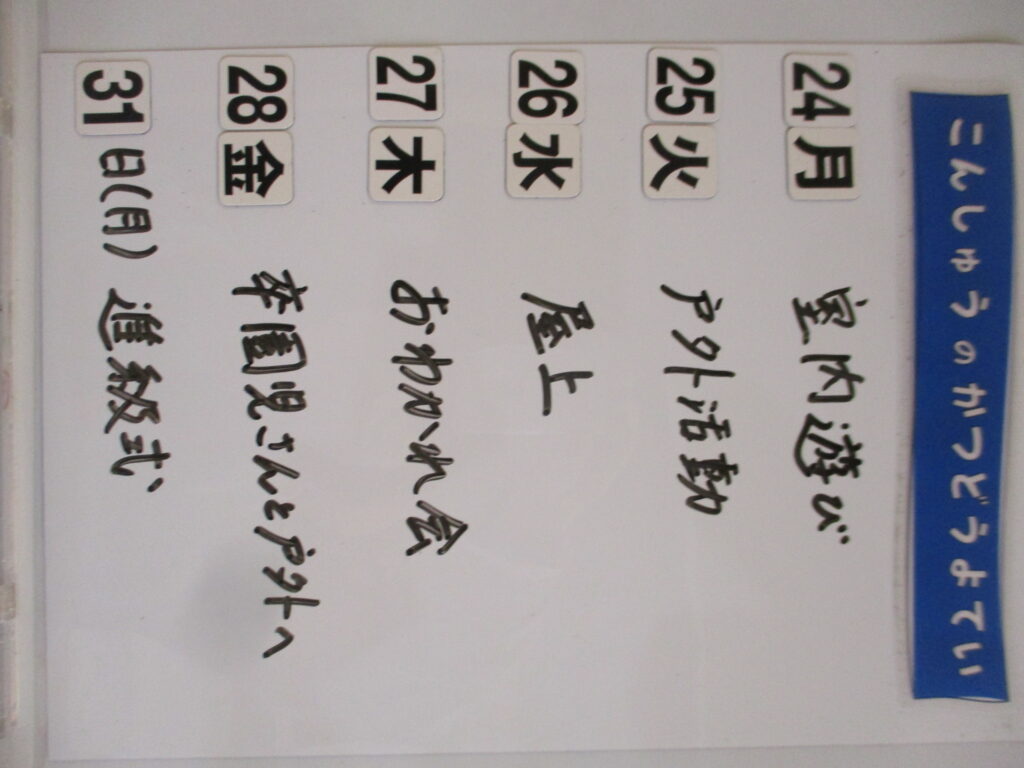 こんしゅうのかつどうよてい
24 月 室内遊び
25 火 戸外活動
26 水 屋上
27 木 おわかれ会
28 金 卒園児さんと戸外へ
31日(月) 進級式